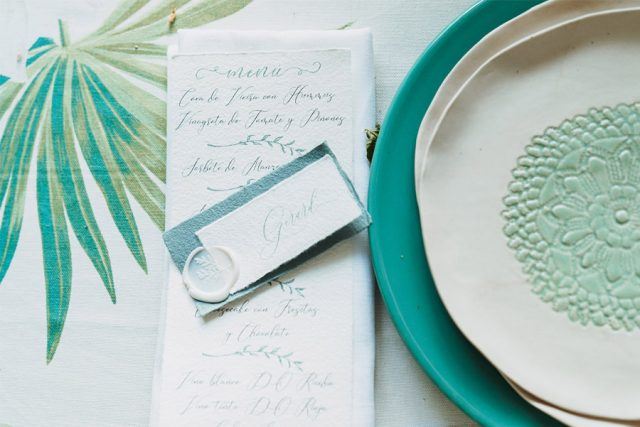 menú
Coca de Vieira con Hummus
Vinagreta de Tomate y Piñones
Sorbete de Manza
Gerard
con Fresitas
y Chocolate
Vino blanco D.O Rueda
Vino tinto D.O Rioja